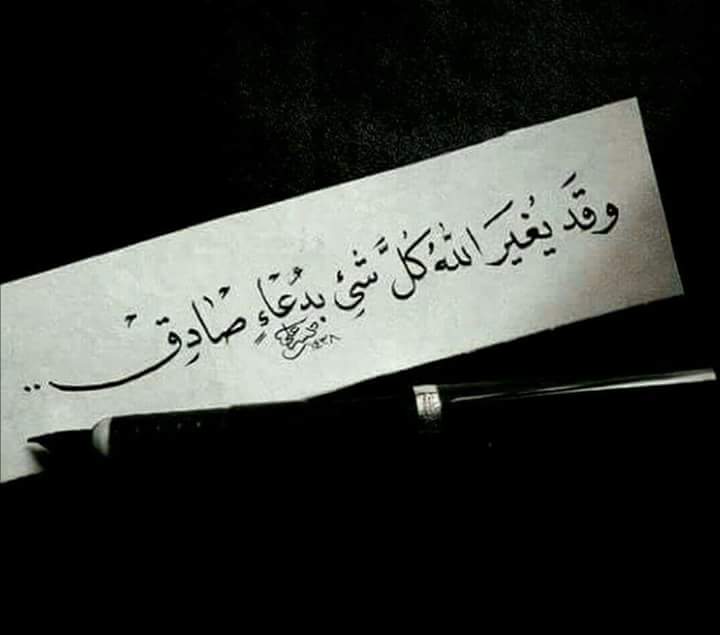 وَقَد يُغيرَ اللهُ كُلَّ شَيْئ بِدُعَاءٍ صَادِق ..
١٤٣٨